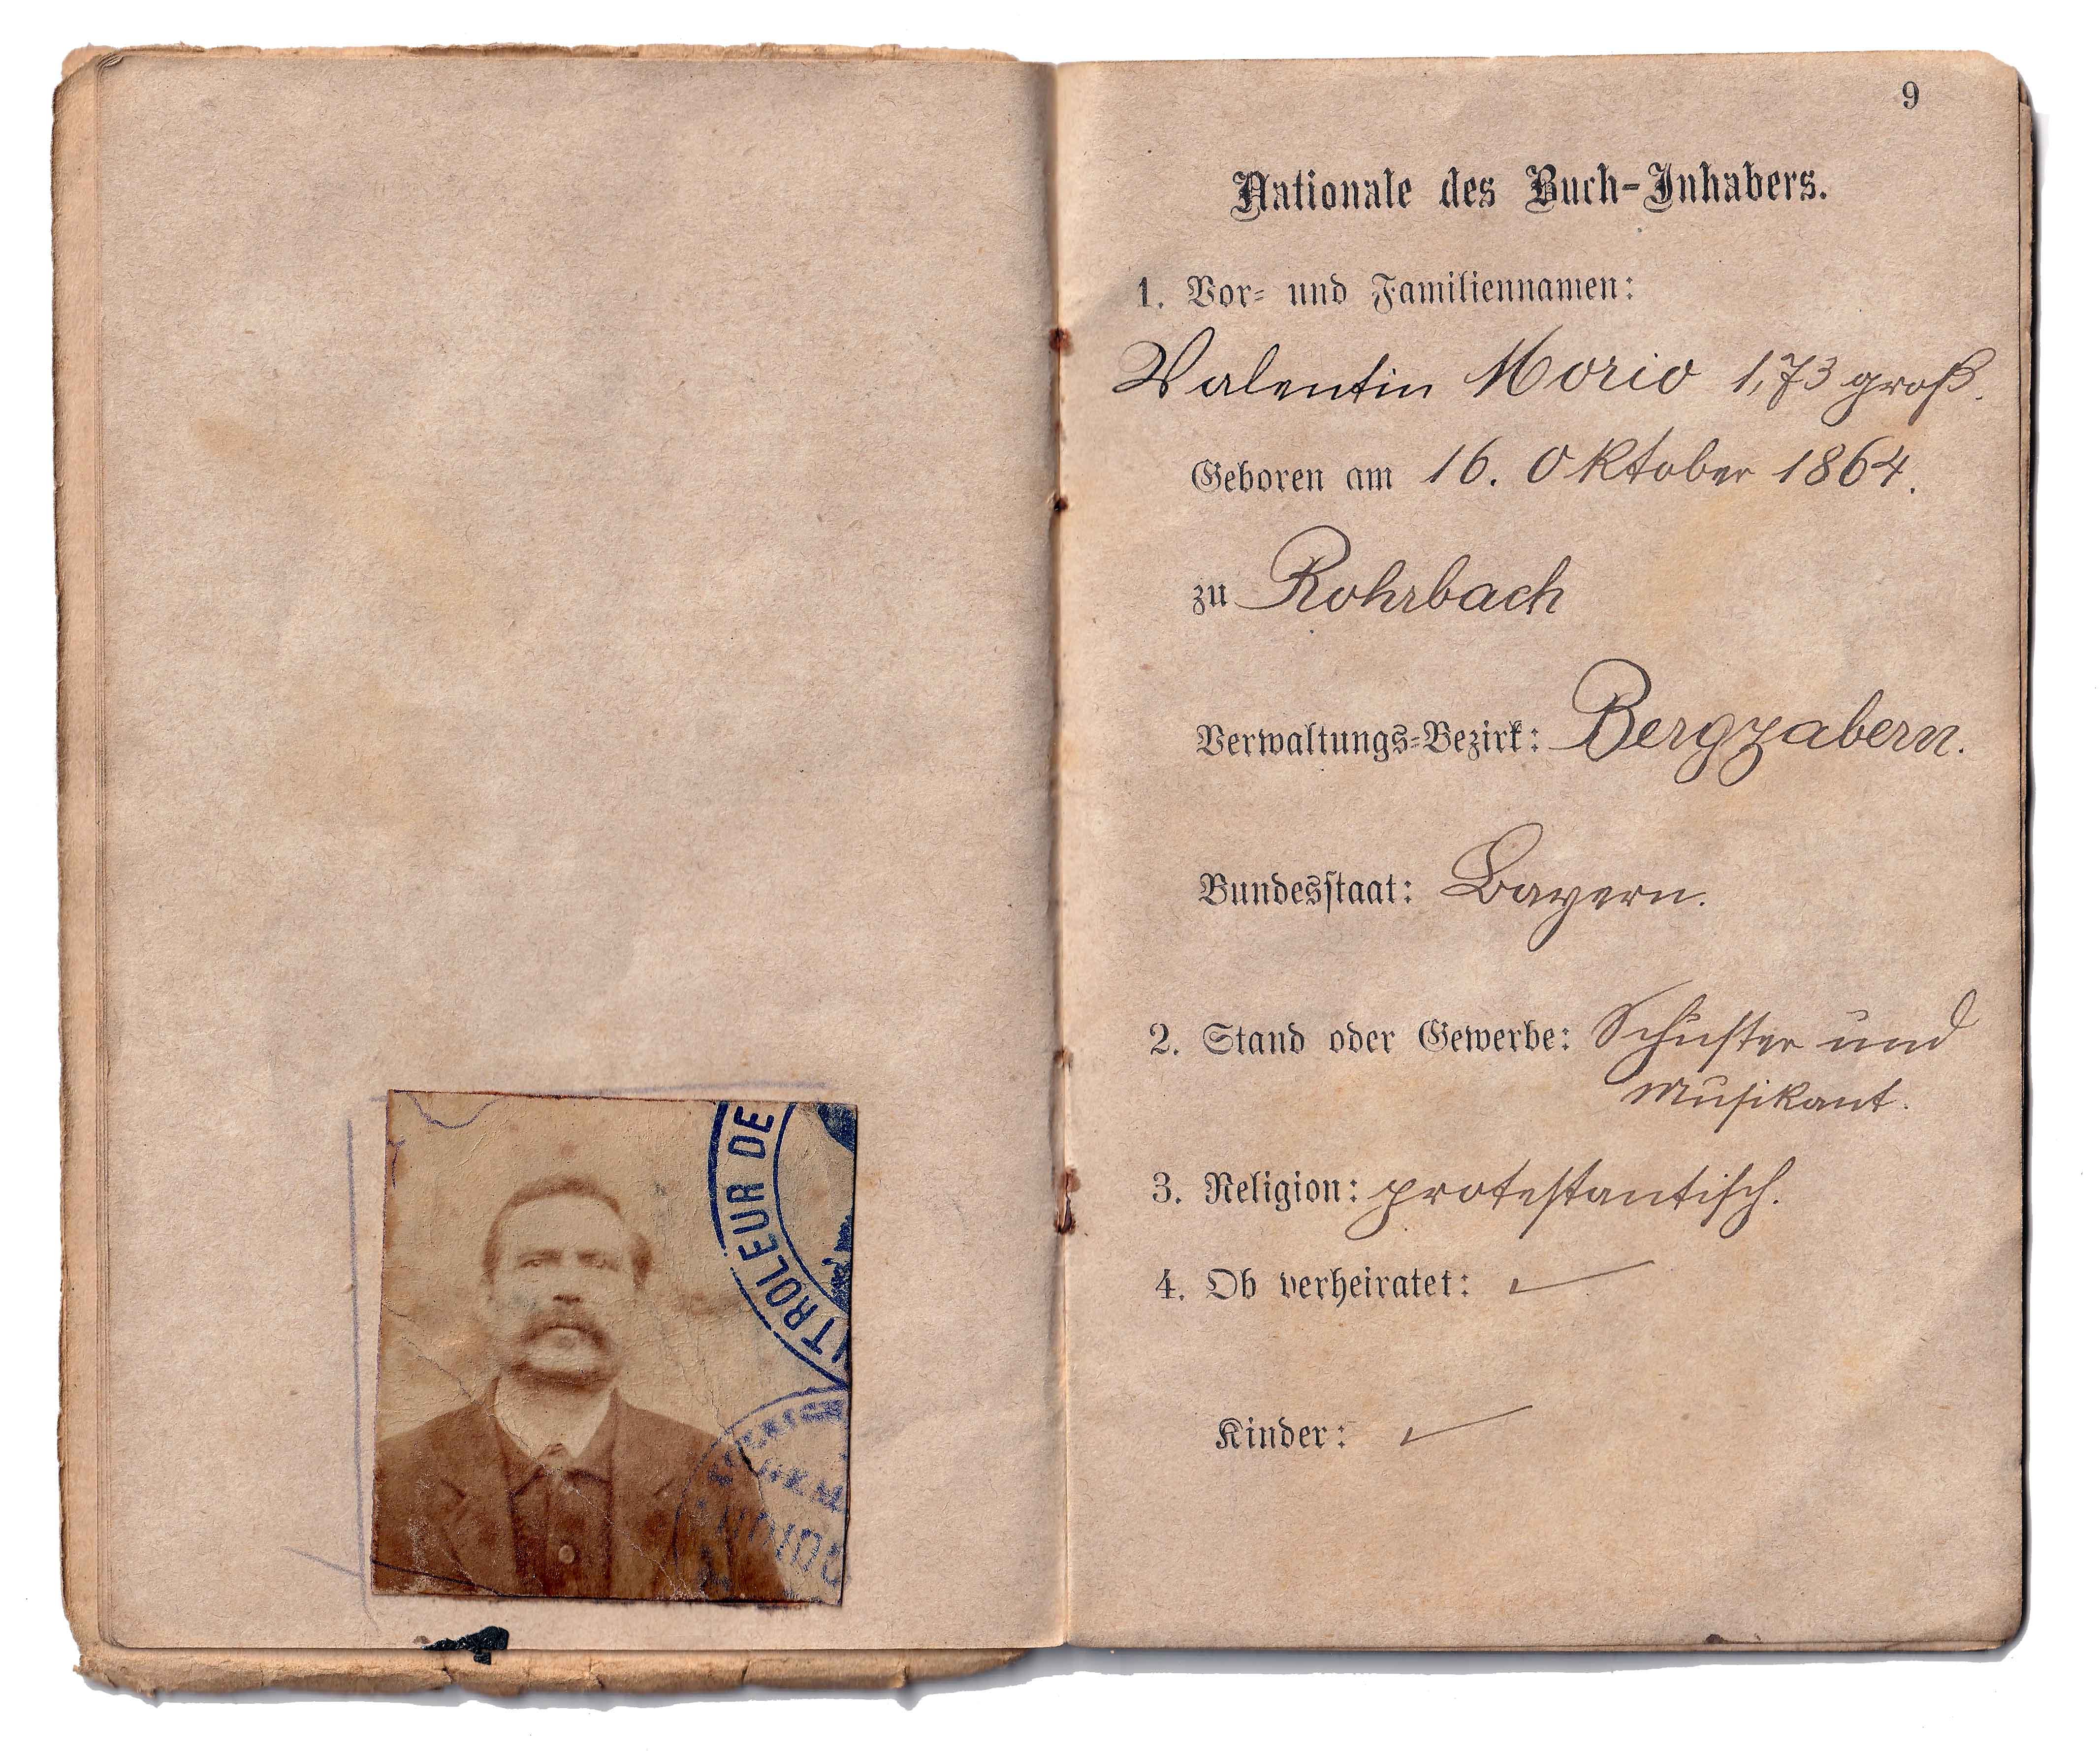 TROLEUR DE
9
Nationale des Buch-Inhabers.
1. Vor- und Familiennamen:
Valentin Morio 1,73 groß.
Geboren am 16. Oktober 1864.
zu Rohrbach
Verwaltungs-Bezirk: Bergzabern.
Bundesstaat: Bayern.
2. Stand oder Gewerbe: Schuster und
Musikant.
3. Religion: protestantisch.
4. Ob verheiratet:
Kinder: